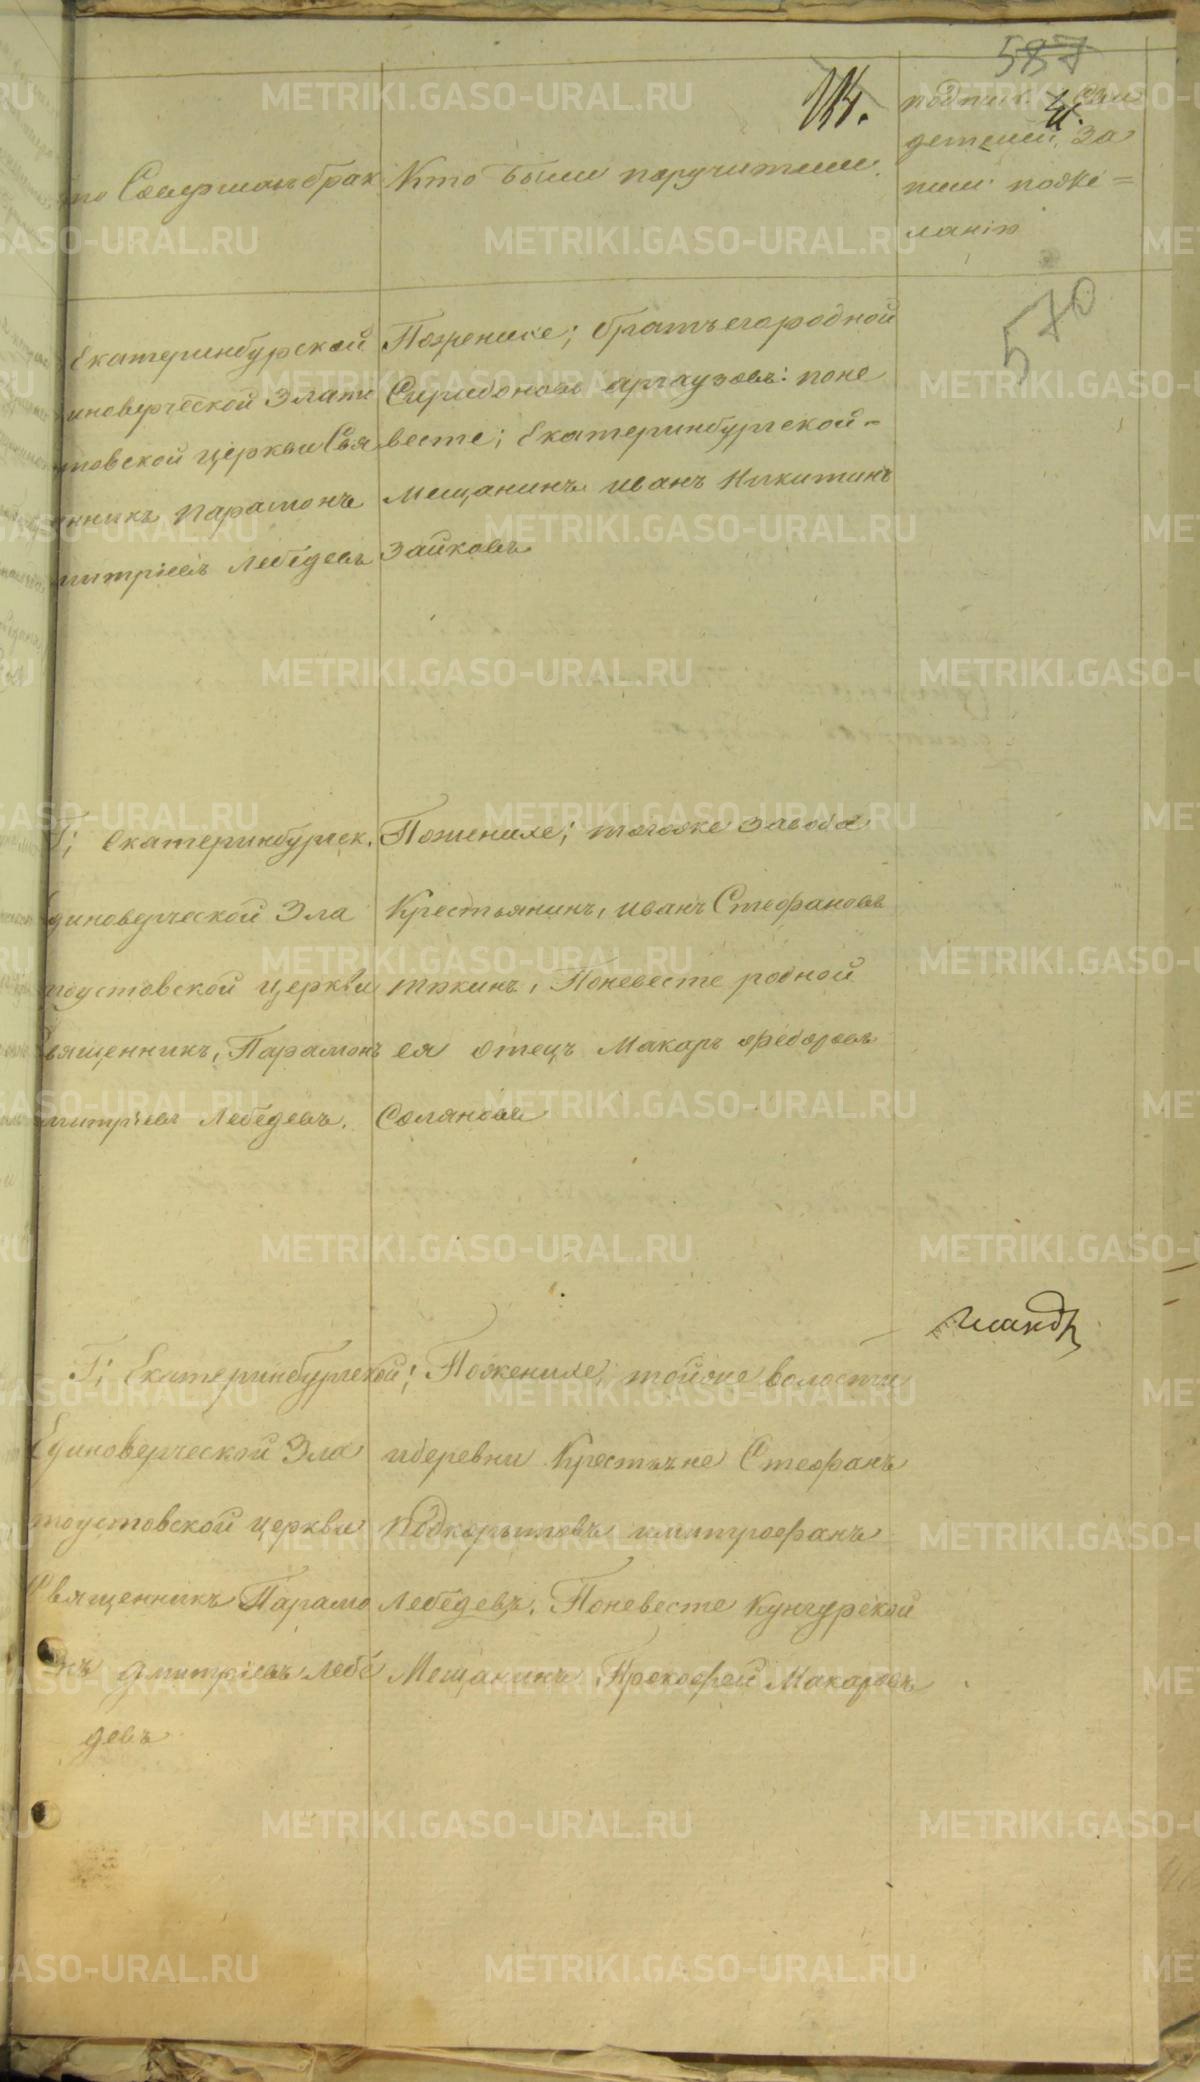 587
570
Кто были поручители.
детелей за
писи по же=
ланію
Екатеринбурской
иноверческой Злато
устовской церкви Свя
щенникъ Парамонъ
митріевъ Лебедевъ
По женихе; братъ его родной
Спиридонъ аргаузовъ: по не
весте; Екатеринбургской
мещанинъ иванъ Никитинъ
Зайковъ
Г; Екатеринбургск.
Единоверческой Зла
тоустовской церкви
Священникъ, Парамонъ
митріевъ Лебедевъ.
По женихе; того же завода
Крестьянинъ, иванъ Стефановъ
тюкинъ, По невесте родной
ея отецъ Макаръ Федоровъ
Соляновъ
Г; Екатеринбургской;
Единоверческой Зла
тоустовской церкви
Священникъ Парамо
нъ Дмитріевъ Лебе
девъ
По женихе; той же волости
и деревни Крестьяне Стефанъ
Подкорытовъ и митрофанъ
Лебедевъ. По невесте Кунгурской
Мещанинъ Прокофей Макаровъ